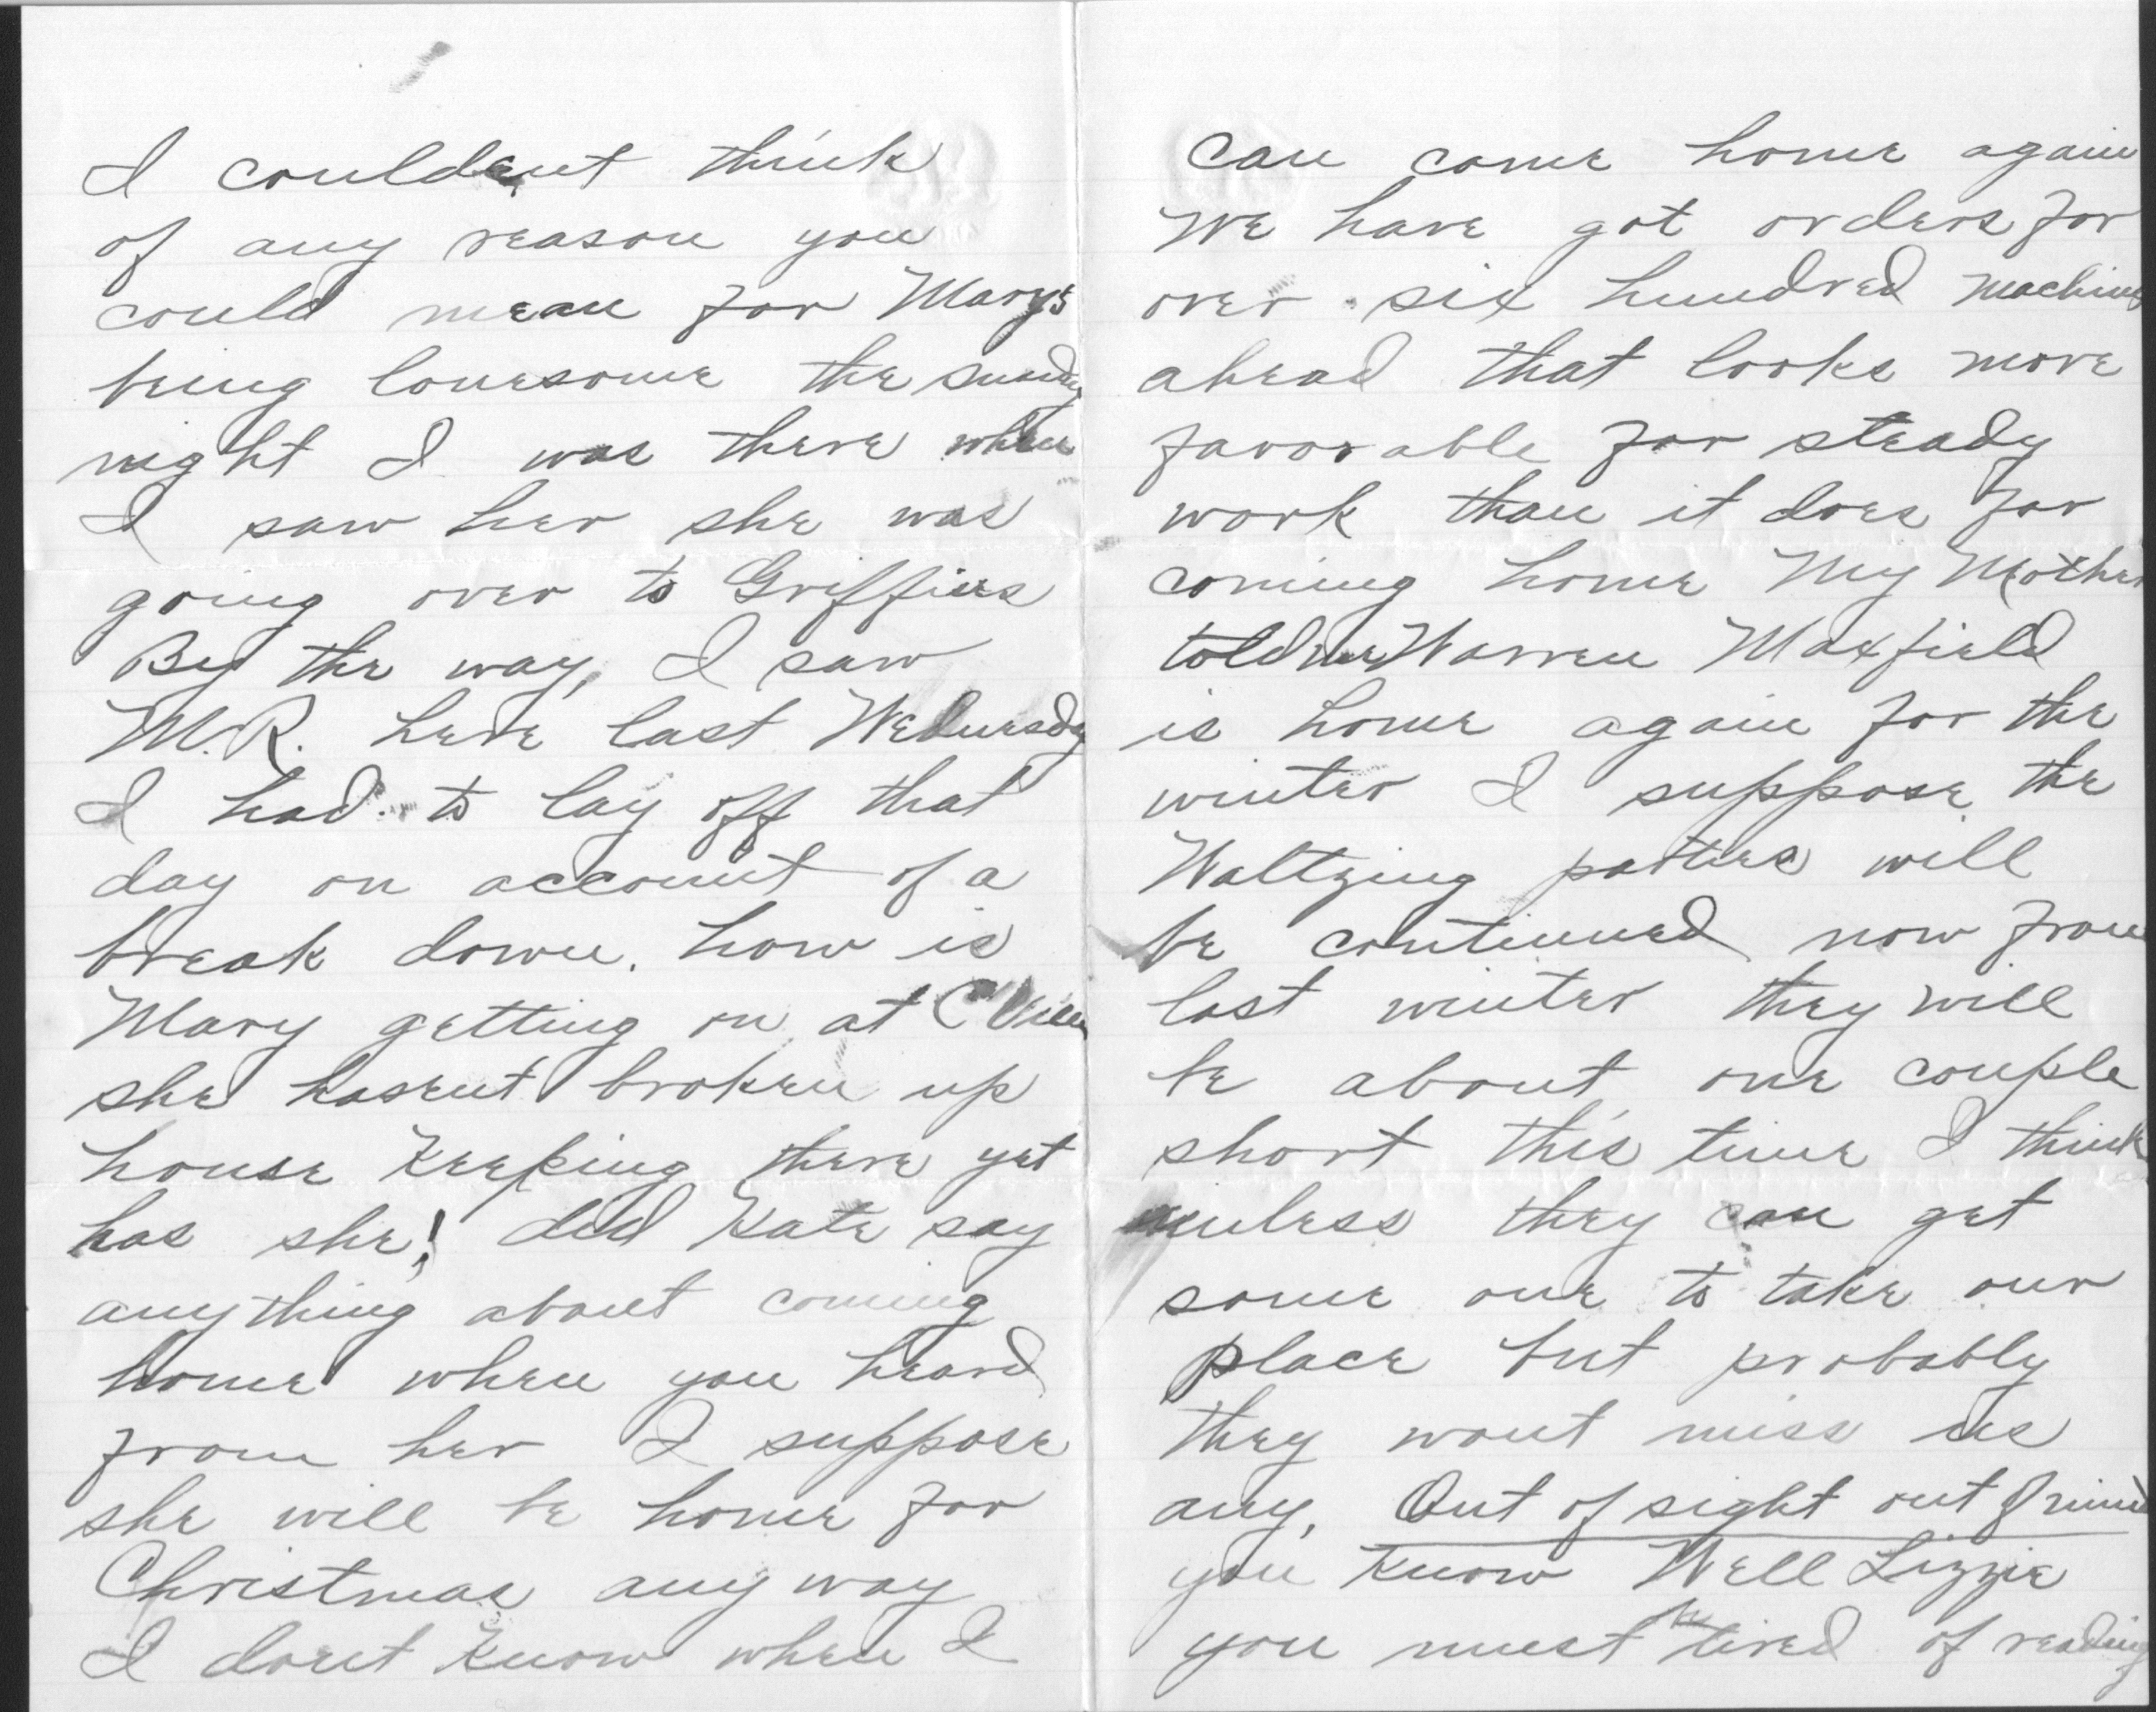 I couldent think
of any reason you
could mean for Marys
being lonesome the sunday
night I was there when
I saw her she was
going over to Griffins
By the way, I saw
M.R. here last Wednesday
I had to lay off that
day on account of a
break down. how is
Mary getting on at C Ville
she hasent broken up
house Keeping there yet
has she! did Kate say
anything about coming
home when you heard
from her I suppose
she will be home for
Christmas any way
I dont Know when I
Can come home again
We have got orders for
over six hundred machines
ahead that looks more
favorable for steady
work than it does for
coming home My Mother
told me Warren Maxfield
is home again for the
winter I suppose the
Waltzing parties will
be continued now from
last winter they will
be about one couple
short this time I think
unless they can get
some one to take our
place but probably
they wont miss us
any, Out of sight out of mind
you Know Well Lizzie
you must be tired of reading